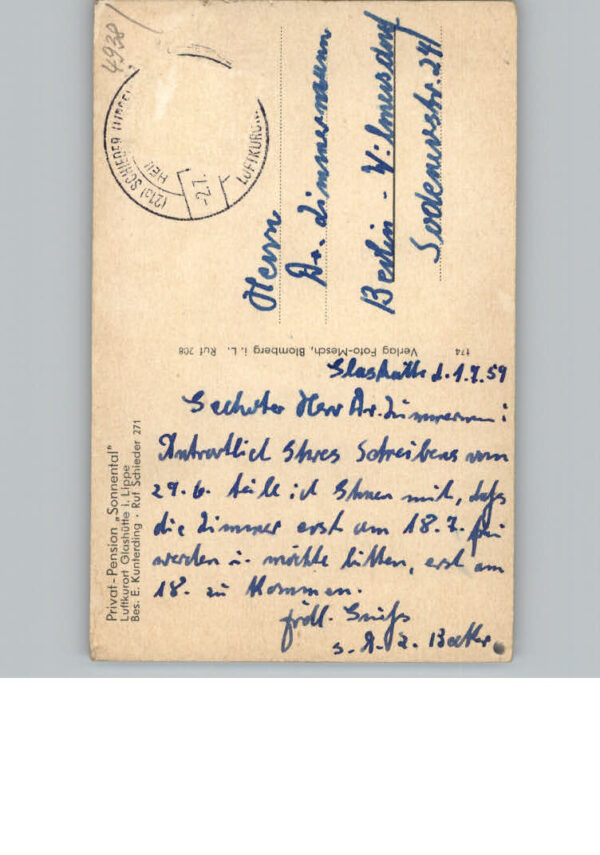 4938
(21a) SCHIEDER (LIPPE
LUFTKURO
-2.7.
Herrn
Dr. Zimmermann
Berlin - Wilmersdorf
Sodenerstr. 24
174 Verlag Foto-Mesch, Blomberg i. L. Ruf 208
Privat-Pension „Sonnental"
Luftkurort Glashütte i. Lippe
Bes. E. Kunterding · Ruf Schieder 271
Glashütte d. 1.7.59
Geehrter Herr Dr. Zimmermann:
Antwortlich Ihres Schreibens vom
29.6. teile ich Ihnen mit, dass
die Zimmer erst am 18.7. frei
werden u. möchte bitten, erst am
18. zu kommen.
frdl. Gruss